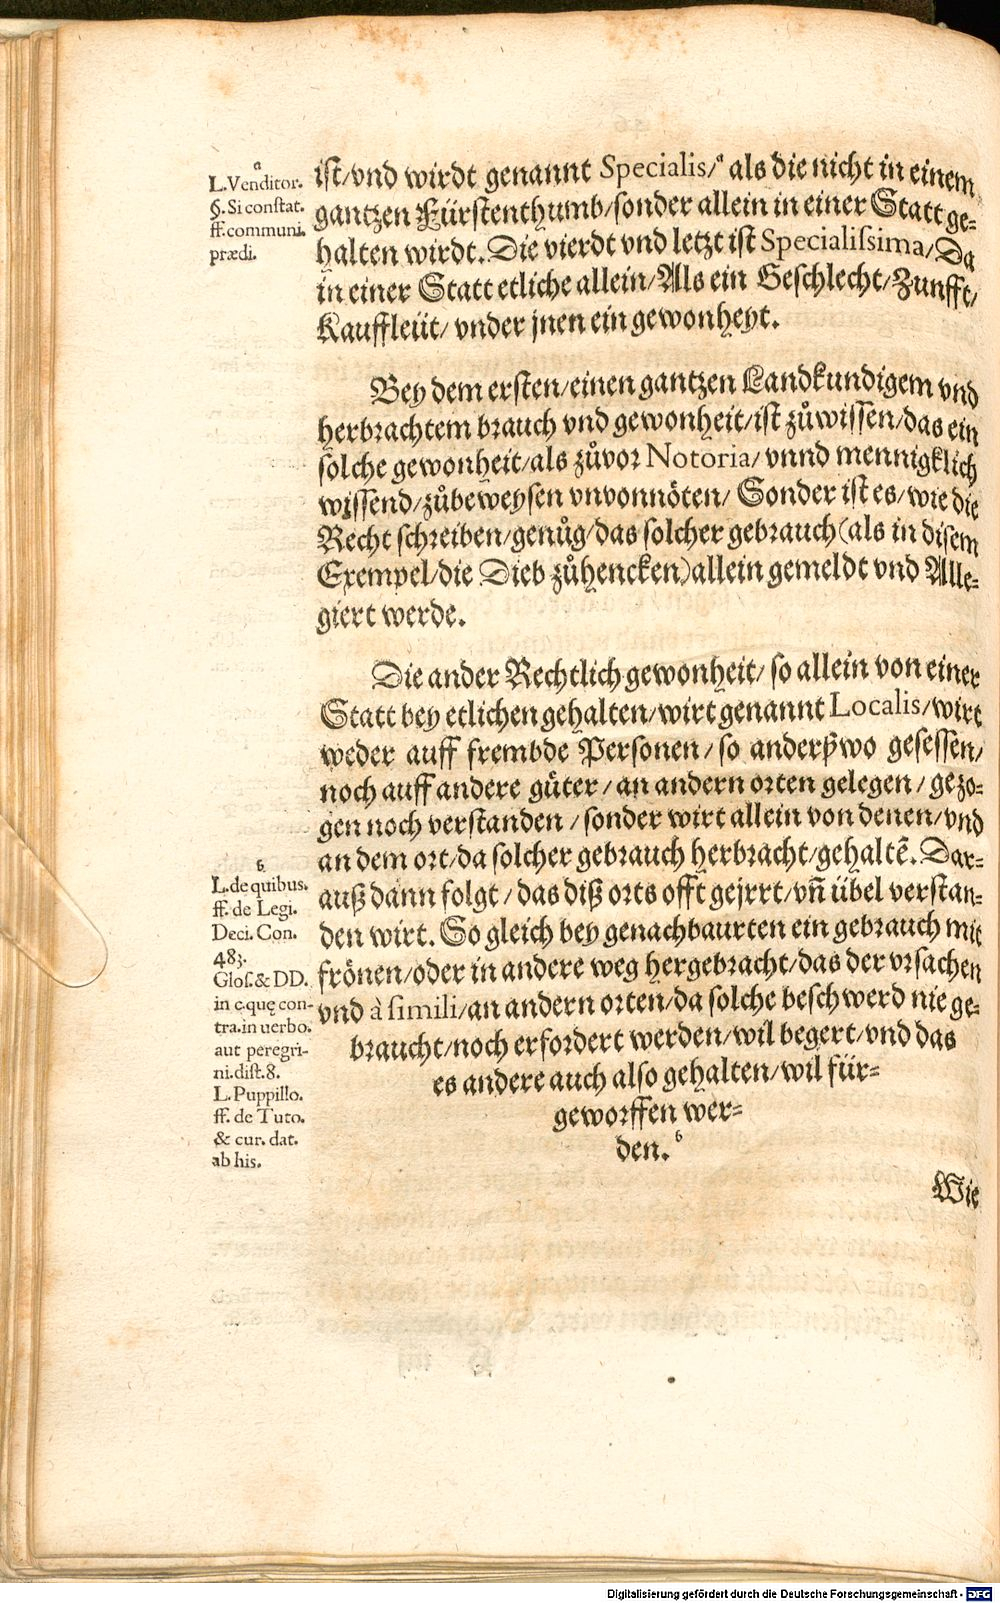 a
L. Venditor.
§. Si constat.
ff. communi.
prædi.
ist/vnd wirdt genannt Specialis/ᵃ als die nicht in einem
gantzen Fürstenthumb/sonder allein in einer Statt ge-
halten wirdt. Die vierdt vnd letzt ist Specialissima/Da
in einer Statt etliche allein/Als ein Geschlecht/Zunfft/
Kauffleüt/ vnder jnen ein gewonheyt.
Bey dem ersten/einen gantzen Landkundigem vnd
herbrachtem brauch vnd gewonheit/ist zůwissen/das ein
solche gewonheit/als zůvor Notoria/ vnnd mennigklich
wissend/zůbeweysen vnvonnöten/ Sonder ist es/wie die
Recht schreiben/genůg/das solcher gebrauch (als in disem
Exempel/die Dieb zůhencken) allein gemeldt vnd Alle-
giert werde.
Die ander Rechtlich gewonheit/ so allein von einer
Statt bey etlichen gehalten/wirt genannt Localis/wirt
weder auff frembde Personen/ so anderßwo gesessen/
noch auff andere gůter/ an andern orten gelegen/ gezo-
gen noch verstanden/ sonder wirt allein von denen/vnd
an dem ort/da solcher gebrauch herbracht/gehaltē. Dar-
auß dann folgt/ das diß orts offt gejrrt/vñ übel verstan-
den wirt. So gleich bey genachbaurten ein gebrauch mit
frönen/oder in andere weg hergebracht/das der vrsachen
vnd à simili/an andern orten/da solche beschwerd nie ge-
braucht/noch erfordert werden/wil begert/vnd das
es andere auch also gehalten/wil für-
geworffen wer-
den.ᵇ
b
L. de quibus.
ff. de Legi.
Deci. Con.
483.
Glos. & DD.
in c. quę con-
tra. in uerbo.
aut peregri-
ni. dist. 8.
L. Puppillo.
ff. de Tuto.
& cur. dat.
ab his.
Wie
Digitalisierung gefördert durch die Deutsche Forschungsgemeinschaft - DFG